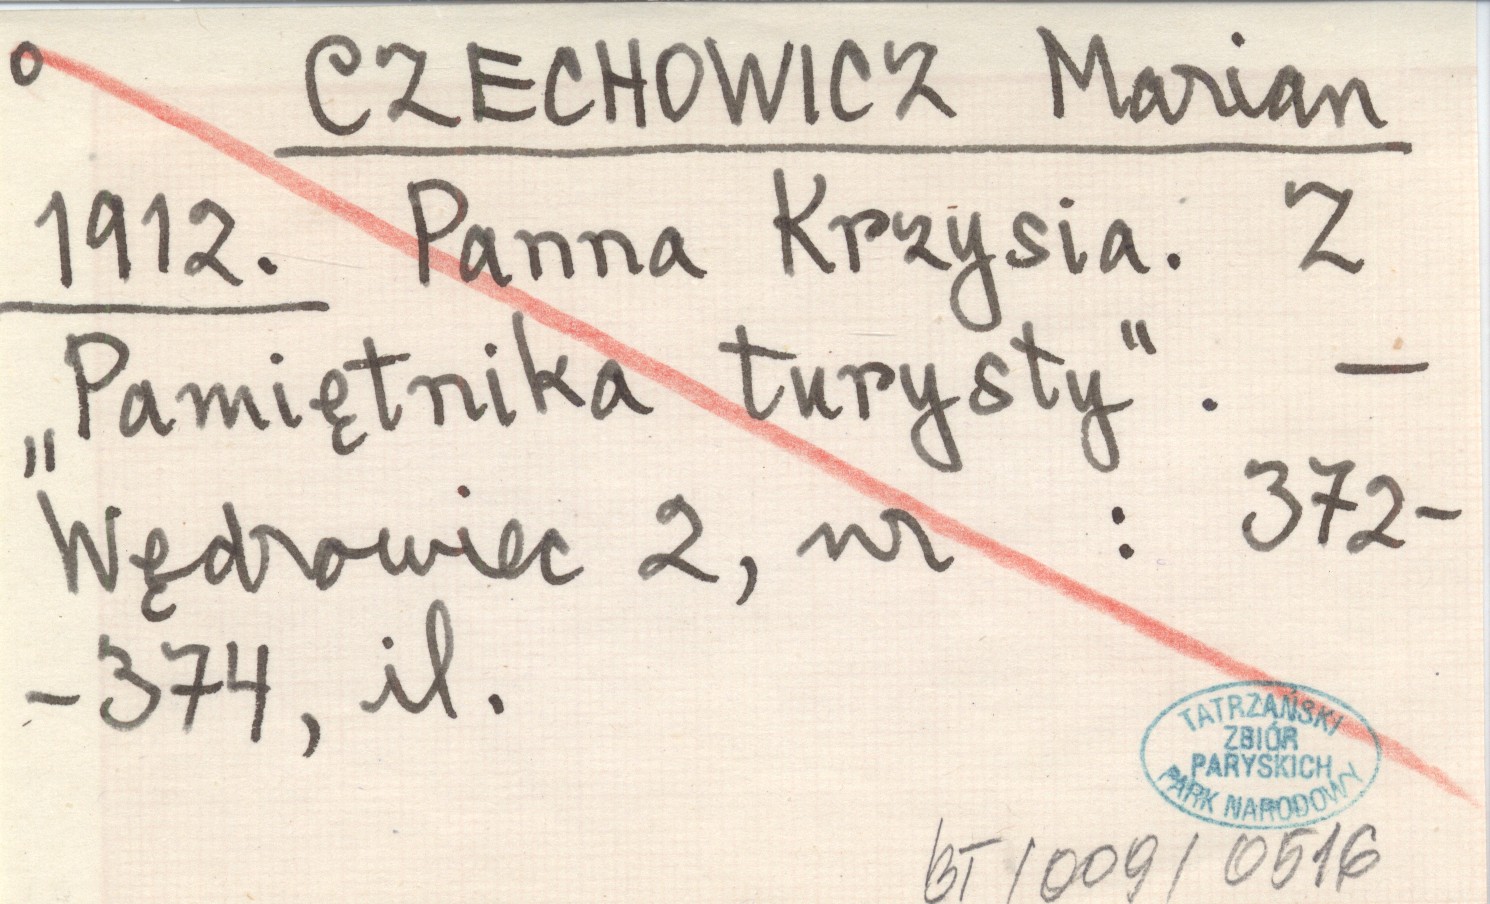 o CZECHOWICZ Marian
1912. Panna Krzysia. Z
„Pamiętnika turysty". —
Wędrowiec 2, nr : 372-
-374, il.
TATRZAŃSKI
ZBIÓR
PARYSKICH
PARK NARODOWY
BT/009/0516